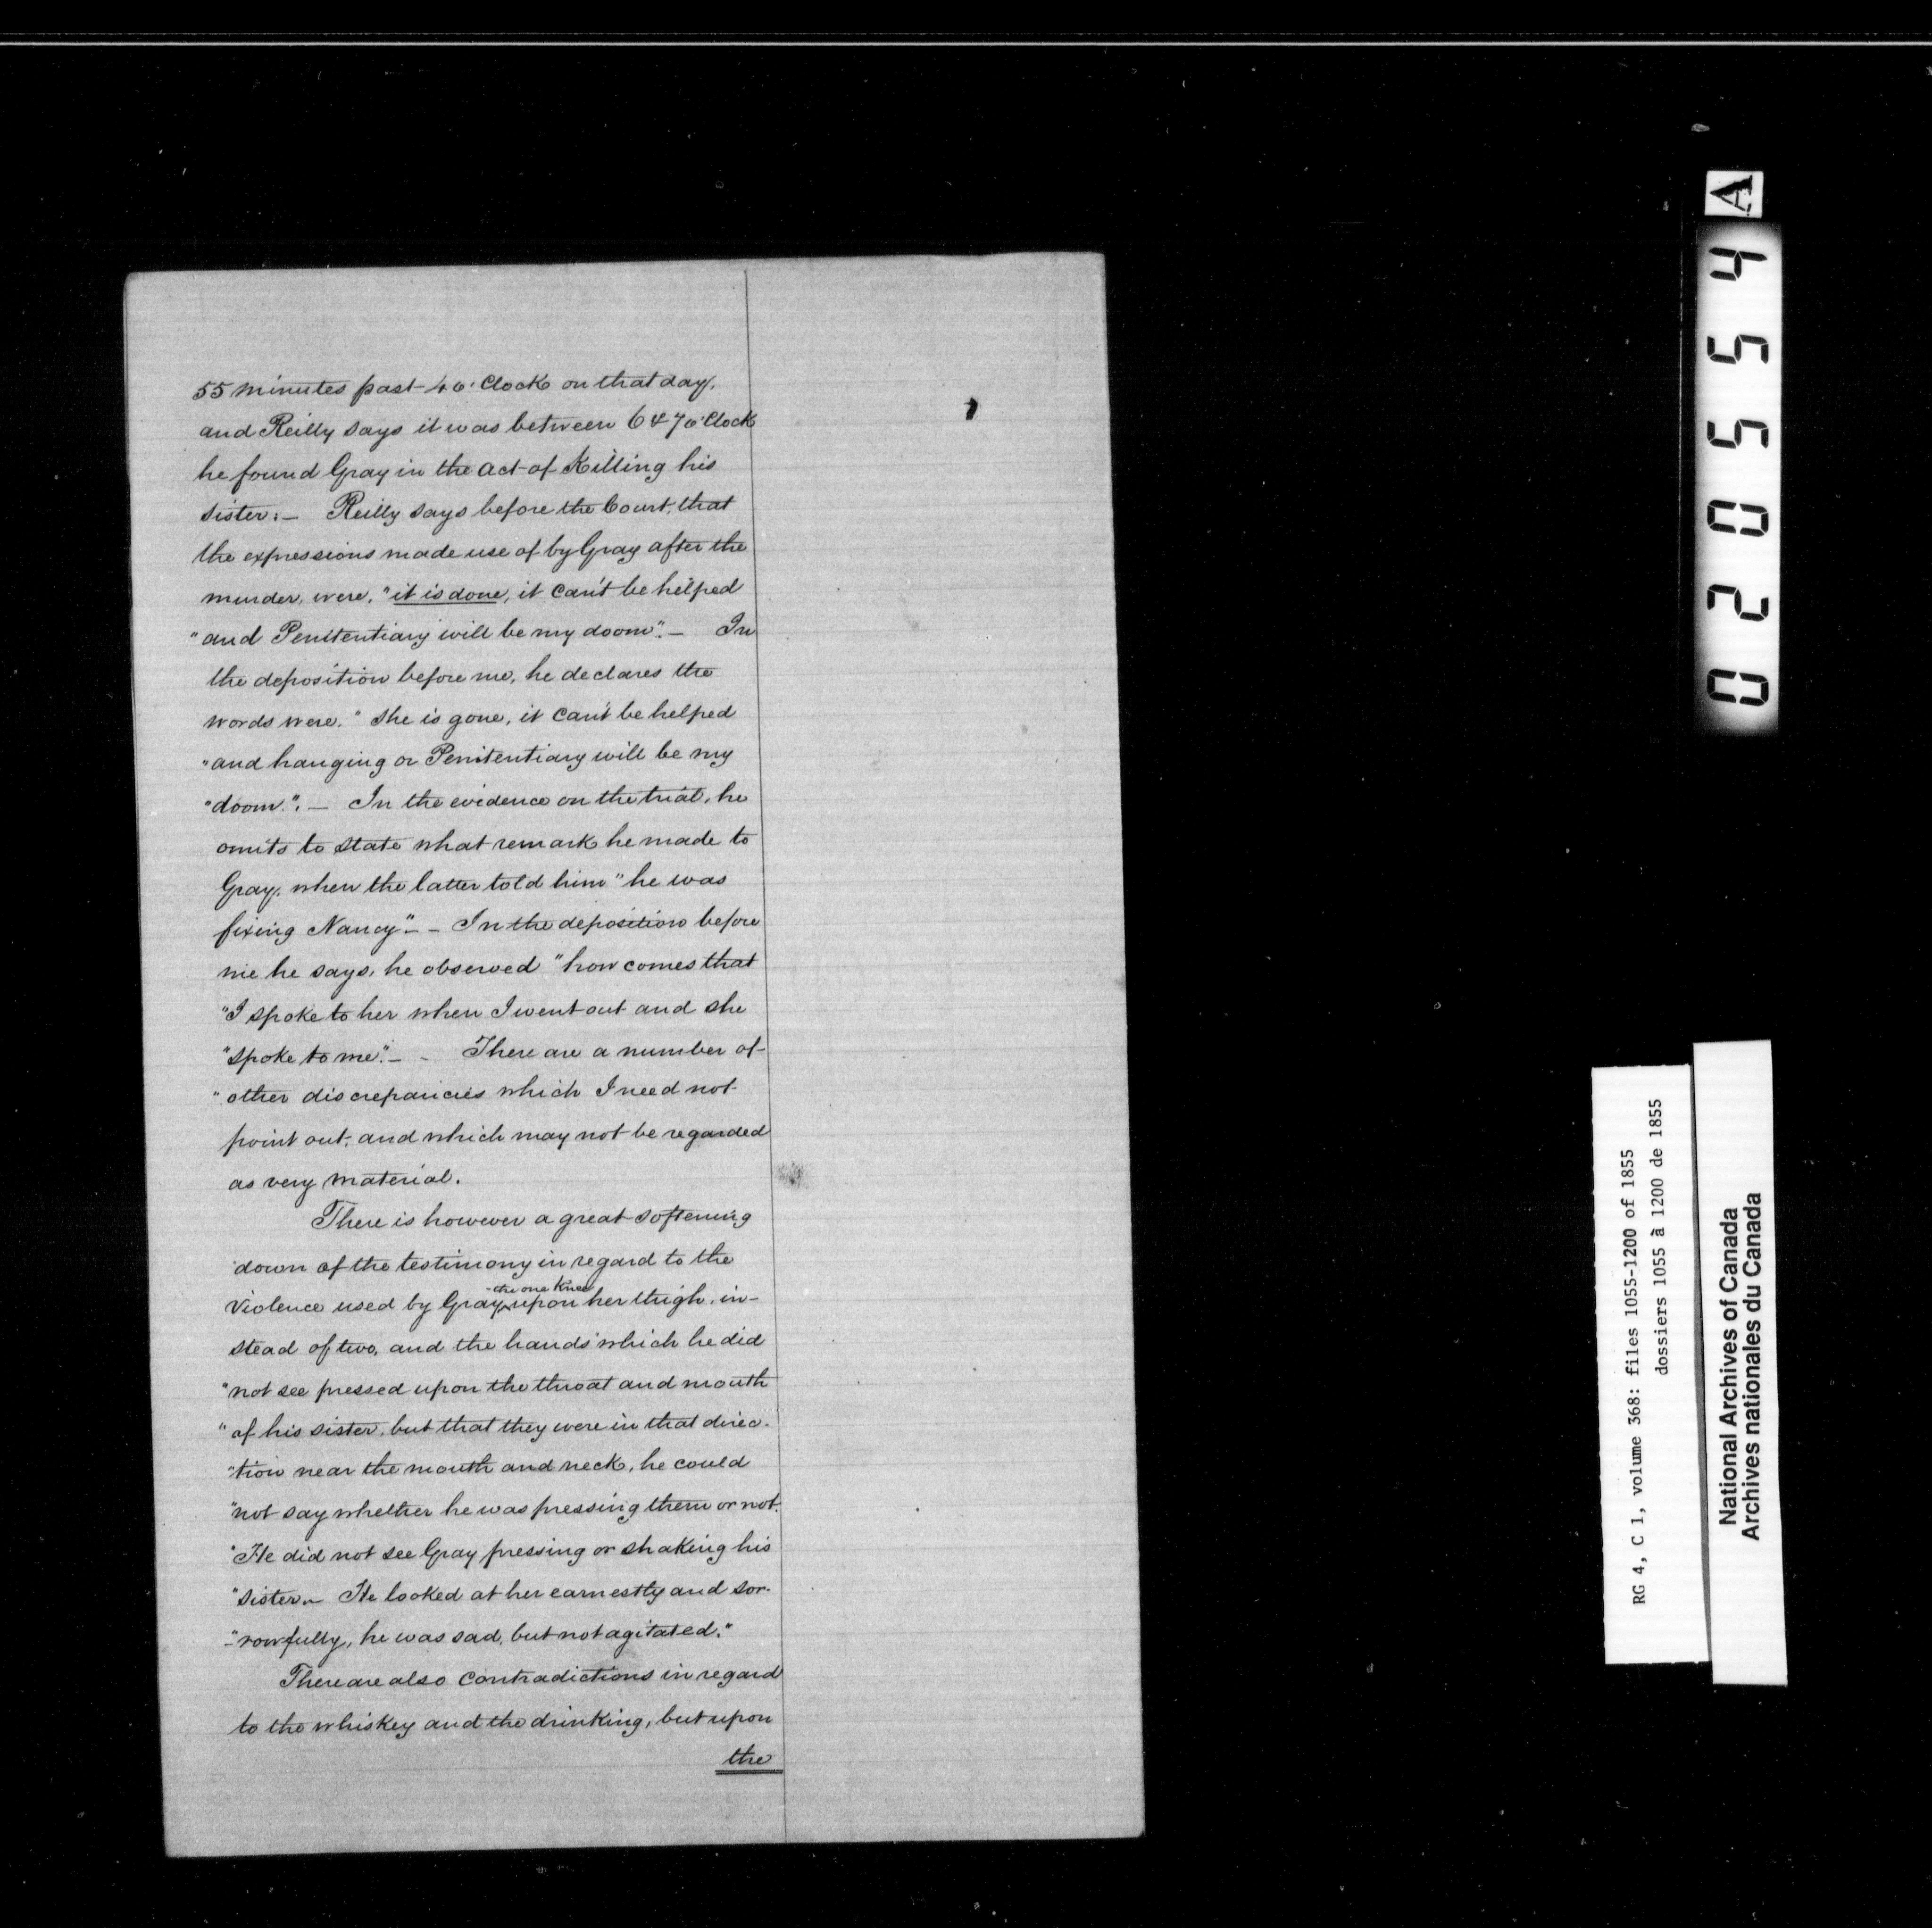 55 minutes past 4 o'Clock on that day,
and Reilly says it was between 6 & 7 o'Clock
he found Gray in the act of Killing his
sister: — Reilly says before the Court, that
the expressions made use of by Gray after the
murder, were, "it is done, it can't be helped
"and Penitentiary will be my doom". — In
the deposition before me, he declares the
words were, "she is gone, it can't be helped
"and hanging or Penitentiary will be my
"doom". — In the evidence on the trial, he
omits to state what remark he made to
Gray, when the latter told him "he was
fixing Nancy" — In the deposition before
me he says, he observed "how comes that
"I spoke to her when I went out and she
"spoke to me". — There are a number of
"other discrepancies which I need not
point out, and which may not be regarded
as very material.
There is however a great softening
down of the testimony in regard to the
the one Knee
Violence used by Gray, upon her thigh, in-
stead of two, and the hands "which he did
"not see pressed upon the throat and mouth
"of his sister, but that they were in that direc-
"tion near the mouth and neck, he could
"not say whether he was pressing them or not.
"He did not see Gray pressing or shaking his
"sister — He looked at her earnestly and sor-
"rowfully, he was sad, but not agitated."
There are also Contradictions in regard
to the whiskey and the drinking, but upon
the
A
020554
RG 4, C 1, volume 368: files 1055-1200 of 1855
dossiers 1055 à 1200 de 1855
National Archives of Canada
Archives nationales du Canada